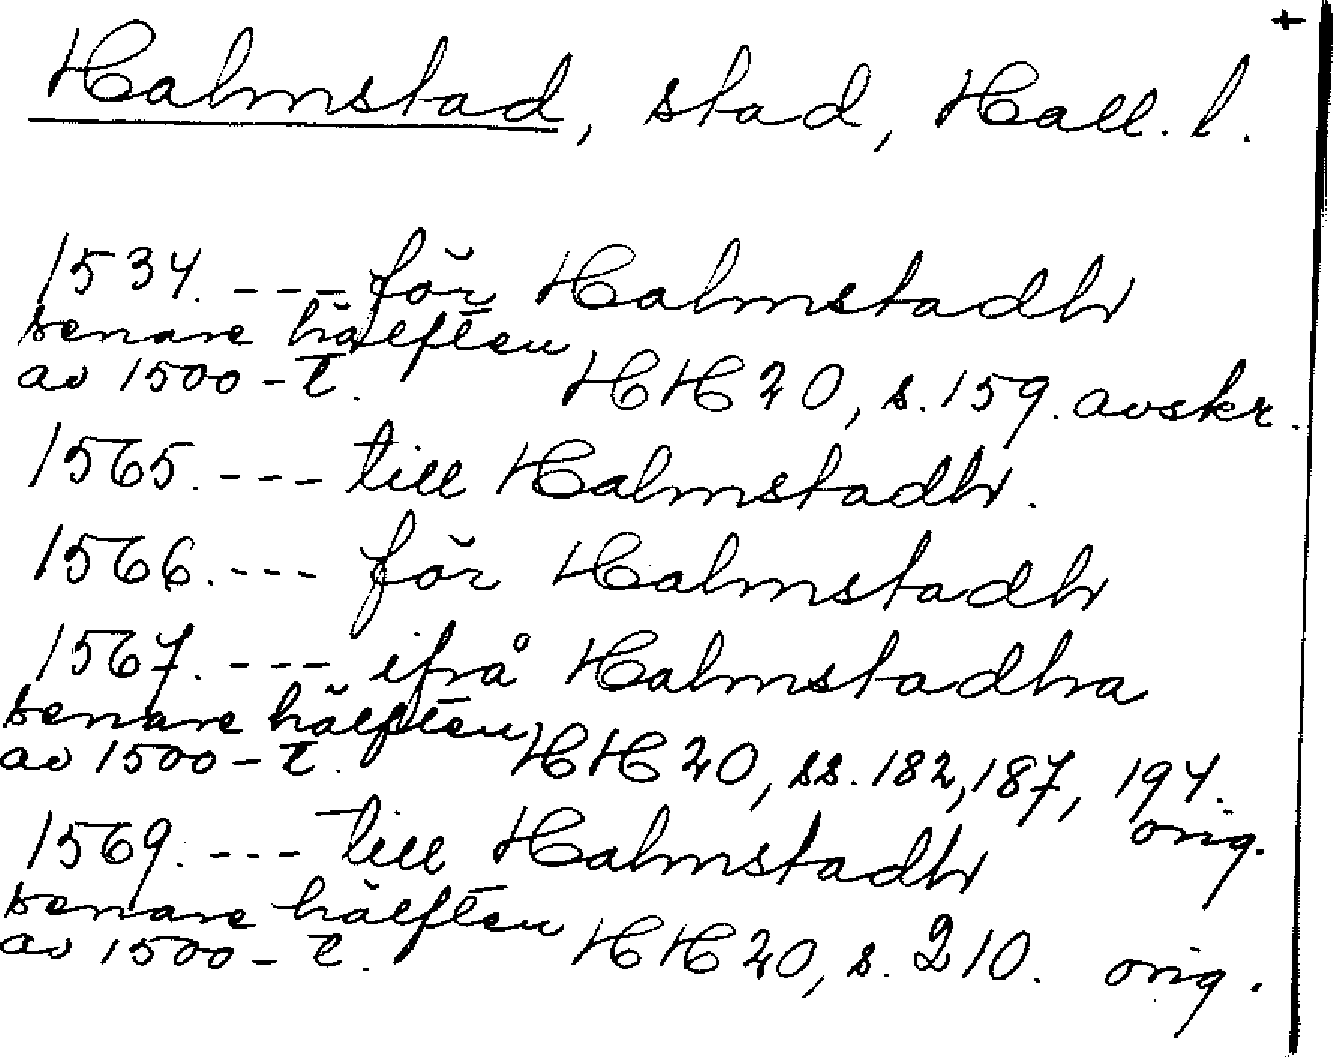 +
Halmstad, stad, Hall. l.
1534. --- för Halmstadh
senare hälften
av 1500-t. HH 20, s. 159. avskr.
1565. --- till Halmstadh.
1566. --- för Halmstadh
1567. --- ifrå Halmstadha
senare hälften
av 1500-t. HH 20, ss. 182, 187, 194.
orig.
1569. --- till Halmstadh
senare hälften
av 1500-t. HH 20, s. 210. orig.